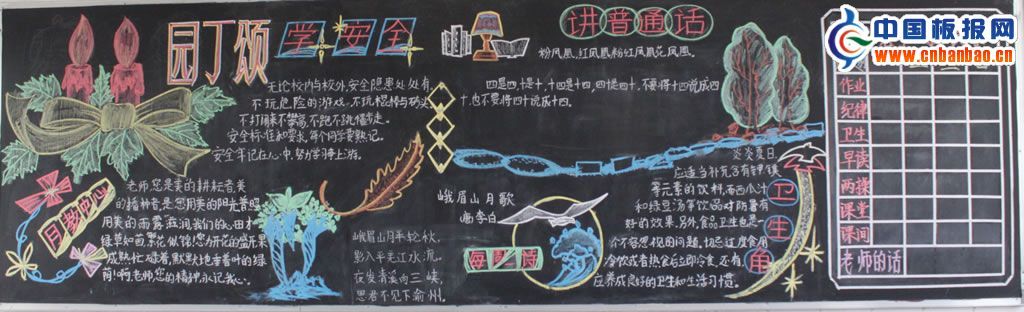 园丁颂
学安全
无论校内与校外,安全隐患处处有,
不玩危险的游戏,不玩棍棒与砖头
不打闹来不攀高,不跑不跳慢步走。
安全标准和要求,每个同学要熟记。
安全牢记在心中,努力学习争上游。
月教中心
老师,您是美的耕耘者,美
的播种者,是您用美的阳光普照,
用美的雨露滋润,我们的心田才
绿草如茵,繁花似锦!您为花的盛开,果的
成熟忙碌着,默默地垂着叶的绿
荫!啊,老师,您的精神,永记我心。
讲普通话
粉凤凰,红凤凰,粉红凤凰花凤凰。
四是四,十是十,十四是十四,四十是四十,不要将十四说成四
十,也不要将四十说成十四。
峨眉山月歌
唐·李白
峨眉山月半轮秋,
影入平羌江水流。
夜发清溪向三峡,
思君不见下渝州。
每期一诗
卫生角
炎炎夏日
应适当补充含有钾、镁
等元素的饮料,而西瓜汁
和绿豆汤等饮品对防暑有
好的效果。另外,食品卫生也是一
个不容忽视的问题,切忌过度食用
冷饮或者热食后立即冷食,还有,
应养成良好的卫生和生活习惯。
中国板报网
www.cnbanbao.cn
作业
纪律
卫生
早读
两操
课堂
课间
老师的话